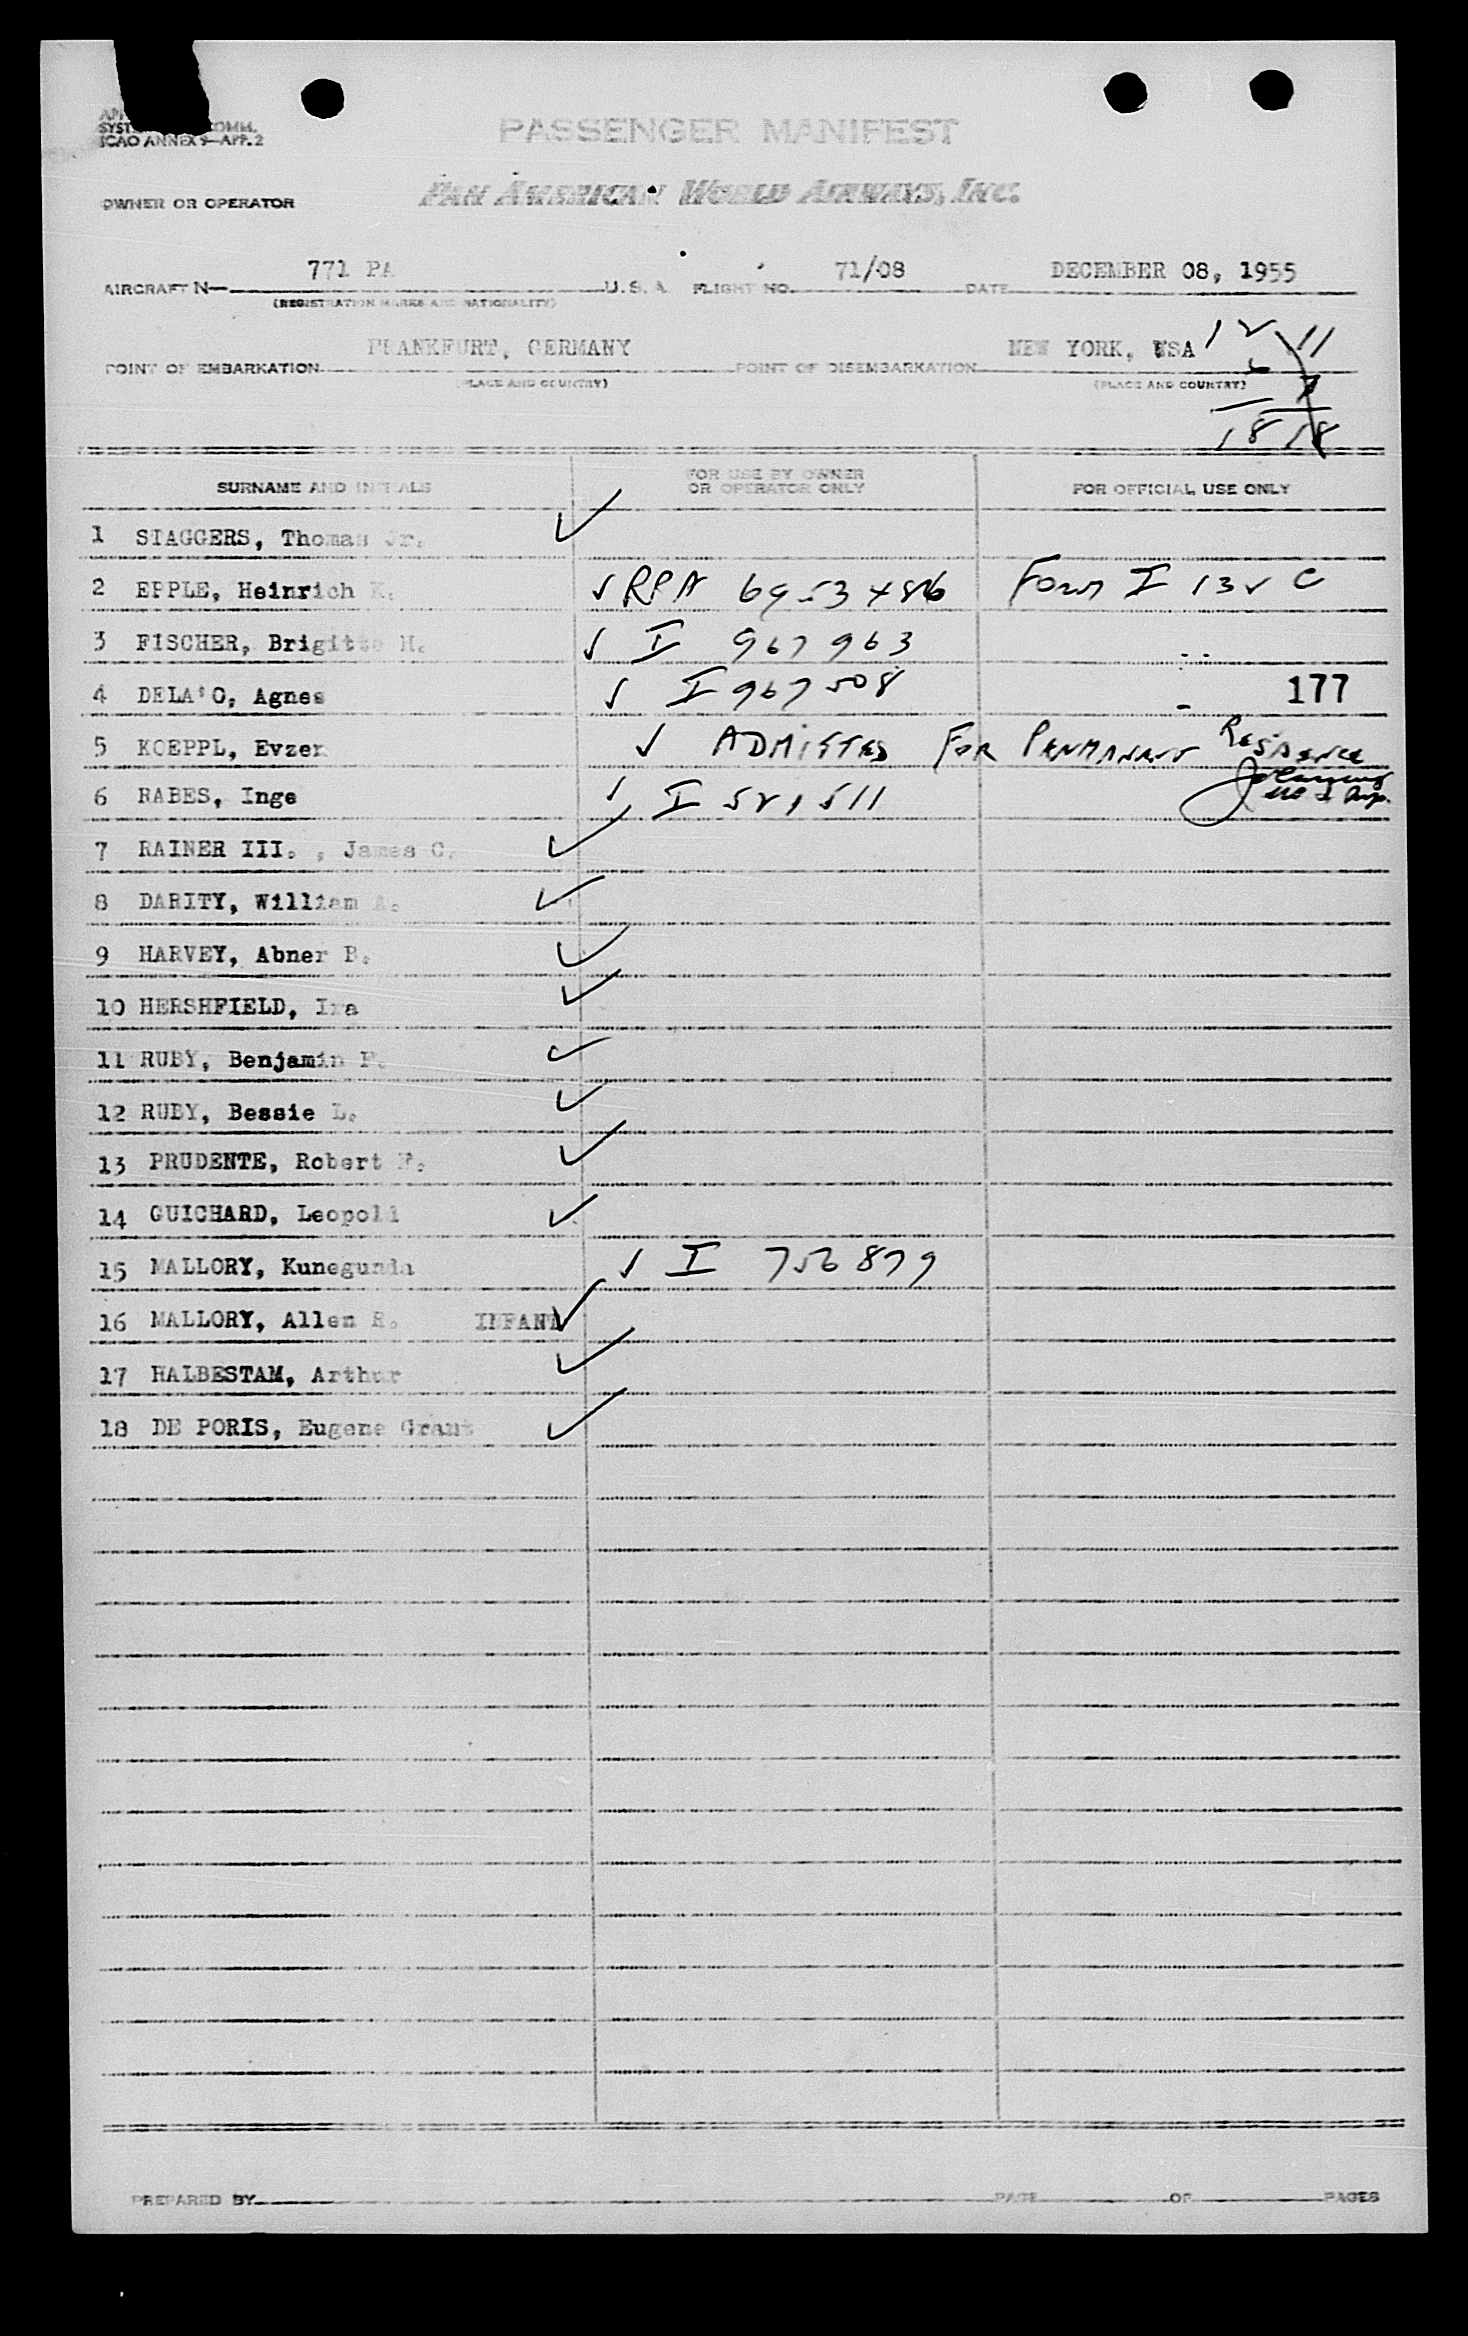 COMM.
ICAO ANNEX 9—APP. 2
PASSENGER MANIFEST
OWNER OR OPERATOR PAN AMERICAN WORLD AIRWAYS, INC.
AIRCRAFT N— 771 PA U. S. A. FLIGHT NO. 71/08 DATE DECEMBER 08, 1955
(REGISTRATION MARKS AND NATIONALITY)
POINT OF EMBARKATION FRANKFURT, GERMANY POINT OF DISEMBARKATION NEW YORK, USA 12 11
(PLACE AND COUNTRY) (PLACE AND COUNTRY) 6 7
18 18
SURNAME AND INITIALS FOR USE BY OWNER OR OPERATOR ONLY FOR OFFICIAL USE ONLY
1 STAGGERS, Thomas Jr. ✓
2 EPPLE, Heinrich K. ✓ RPA Form I 132 C
3 FISCHER, Brigitte H. ✓ I 967963
4 DELA'O, Agnes ✓ I 967508 177
5 KOEPPL, Evzen ✓ ADMITTED FOR PERMANENT RESIDENCE
6 RABES, Inge ✓ I 521511
7 RAINER III. , James C. ✓
8 DARITY, William A. ✓
9 HARVEY, Abner B. ✓
10 HERSHFIELD, Ira ✓
11 RUBY, Benjamin F. ✓
12 RUBY, Bessie L. ✓
13 PRUDENTE, Robert F. ✓
14 GUICHARD, Leopold ✓
15 MALLORY, Kunegunda ✓ I 756879
16 MALLORY, Allen R. INFANT ✓
17 HALBESTAM, Arthur ✓
18 DE PORIS, Eugene Grant ✓
PREPARED BY PAGE OF PAGES